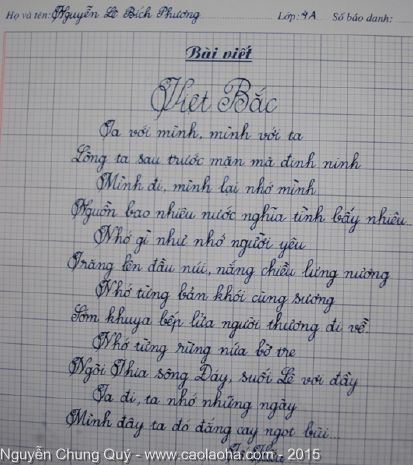 Họ và tên: Nguyễn Lê Bích Phương Lớp: 4A Số báo danh:
Bài viết
Việt Bắc
Ta với mình, mình với ta
Lòng ta sau trước mặn mà đinh ninh
Mình đi, mình lại nhớ mình
Nguồn bao nhiêu nước nghĩa tình bấy nhiêu...
Nhớ gì như nhớ người yêu
Trăng lên đầu núi, nắng chiều lưng nương
Nhớ từng bản khói cùng sương
Sớm khuya bếp lửa người thương đi về.
Nhớ từng rừng nứa bờ tre
Ngòi Thia sông Đáy, suối Lê vơi đầy
Ta đi, ta nhớ những ngày
Mình đây ta đó đắng cay ngọt bùi...
Nguyễn Chung Quý - www.caolaoha.com - 2015